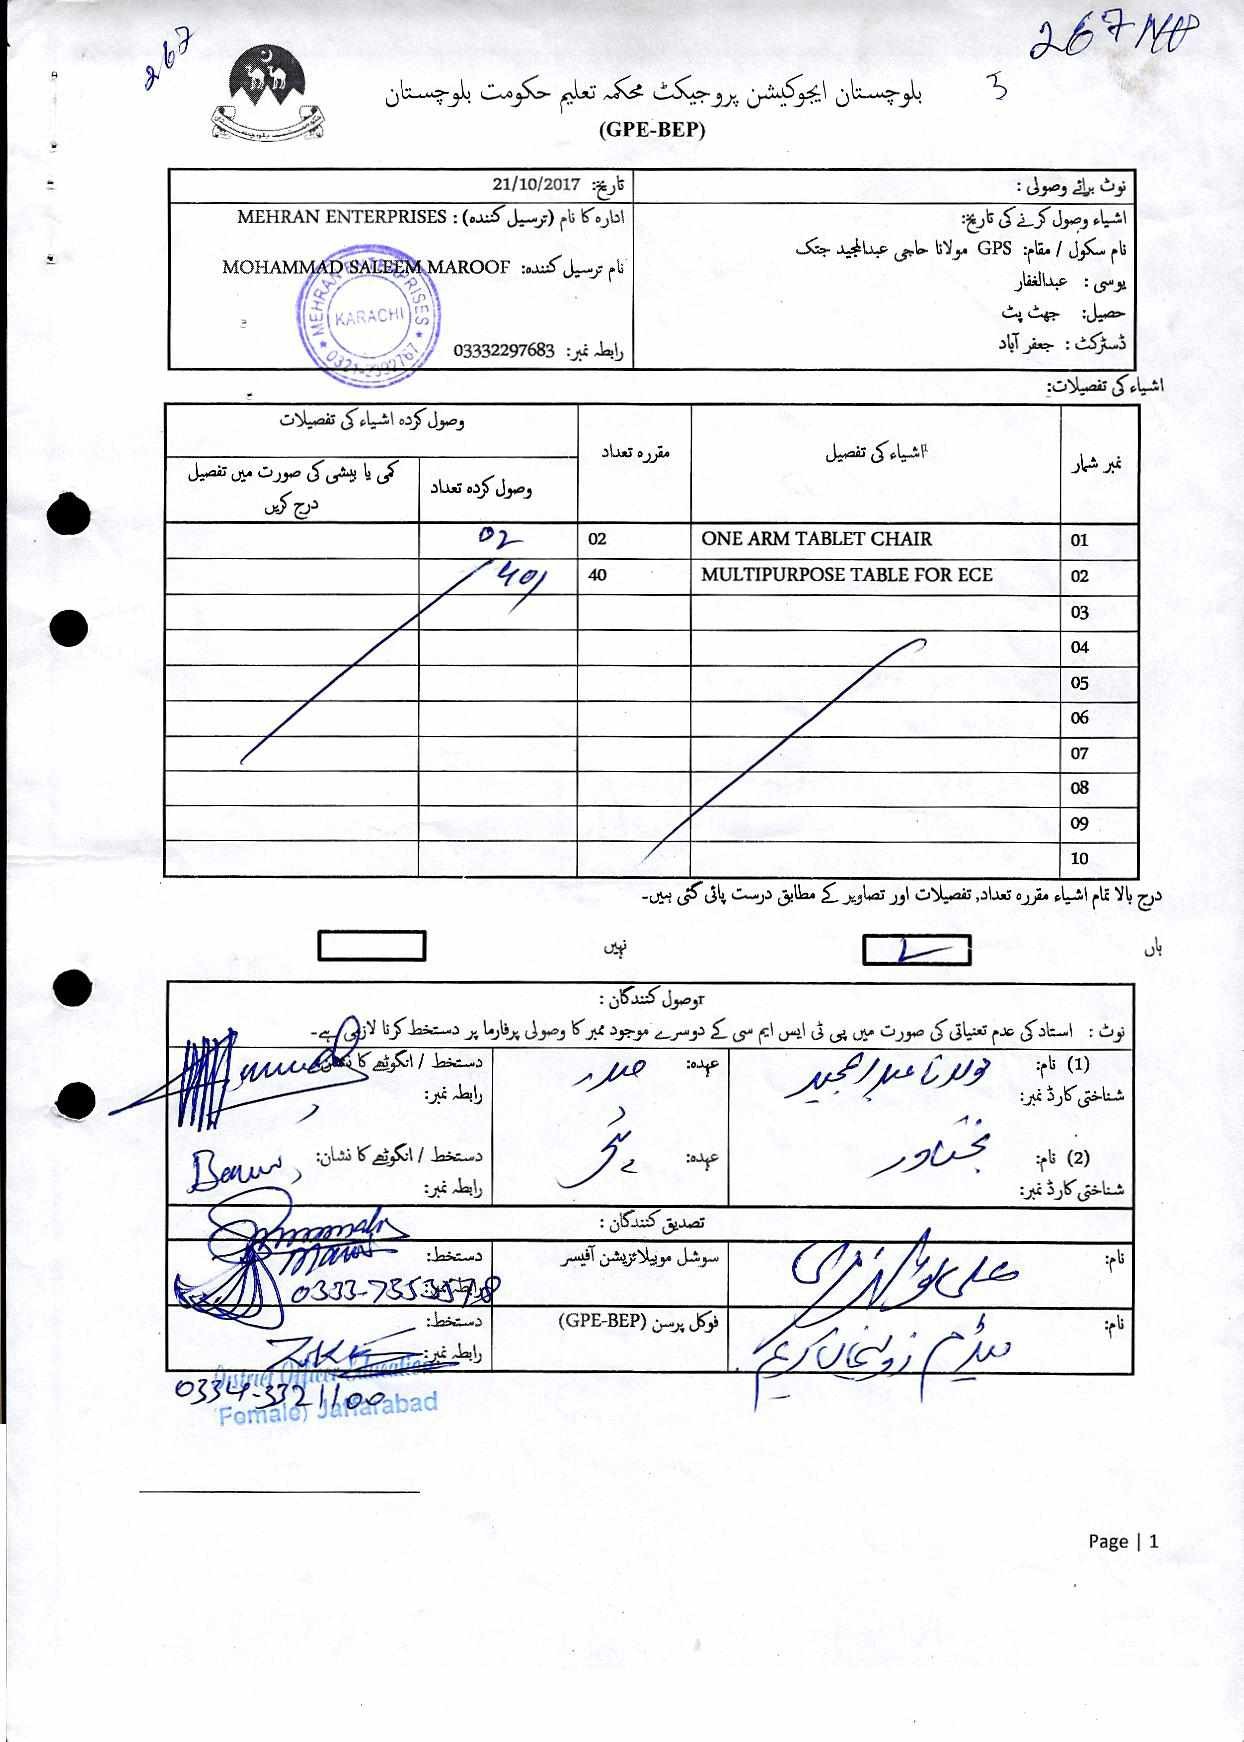 267
267 NP
3
بلوچستان ایجوکیشن پروجیکٹ محکمہ تعلیم حکومت بلوچستان
(GPE-BEP)
نوٹ برائے وصولی :
تاریخ: 21/10/2017
اشیاء وصول کرنے کی تاریخ:
ادارہ کا نام (ترسیل کنندہ) : MEHRAN ENTERPRISES
نام سکول / مقام: GPS مولانا حاجی عبدالمجید جتک
نام ترسیل کنندہ: MOHAMMAD SALEEM MAROOF
یوسی : عبدالغفار
حصیل: جھٹ پٹ
ڈسٹرکٹ : جعفر آباد
رابطہ نمبر: 03332297683
MEHRAN ENTERPRISES
KARACHI
اشیاء کی تفصیلات:
نمبر شمار
اشیاء کی تفصیل
مقررہ تعداد
وصول کردہ اشیاء کی تفصیلات
وصول کردہ تعداد
کمی یا بیشی کی صورت میں تفصیل درج کریں
01 ONE ARM TABLET CHAIR 02 02
02 MULTIPURPOSE TABLE FOR ECE 40 40
03
04
05
06
07
08
09
10
درج بالا تمام اشیاء مقررہ تعداد, تفصیلات اور تصاویر کے مطابق درست پائی گئی ہیں۔
ہاں
نہیں
وصول کنندگان :
نوٹ : استاد کی عدم تعنیاتی کی صورت میں پی ٹی ایس ایم سی کے دوسرے موجود ممبر کا وصولی پرفارما پر دستخط کرنا لازمی ہے۔
(1) نام: مولانا عبدالمجید
عہدہ: صدر
دستخط / انگوٹھے کا نشان:
شناختی کارڈ نمبر:
رابطہ نمبر:
(2) نام: بختاور
عہدہ:
دستخط / انگوٹھے کا نشان:
شناختی کارڈ نمبر:
رابطہ نمبر:
تصدیق کنندگان :
نام:
سوشل موبیلائزیشن آفیسر
دستخط:
رابطہ نمبر:
نام:
فوکل پرسن (GPE-BEP)
دستخط:
رابطہ نمبر:
District Officer Education
0334-3321100
Female) Jaffarabad
Page | 1